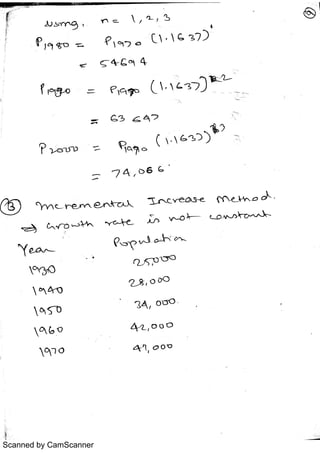 Using, n = 1, 2, 3
P1980 = P1970 (1.1637)¹
= 54694
P1990 = P1970 (1.1637)²
= 63647
P2000 = P1970 (1.1637)³
= 74,066
③ Incremental Increase Method.
⇒ Growth rate is not constant
Year Population
1930 25,000
1940 28,000
1950 34,000
1960 42,000
1970 47,000
Scanned by CamScanner